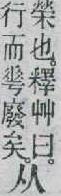 榮也。釋艸曰。
行而𠌶廢矣。从